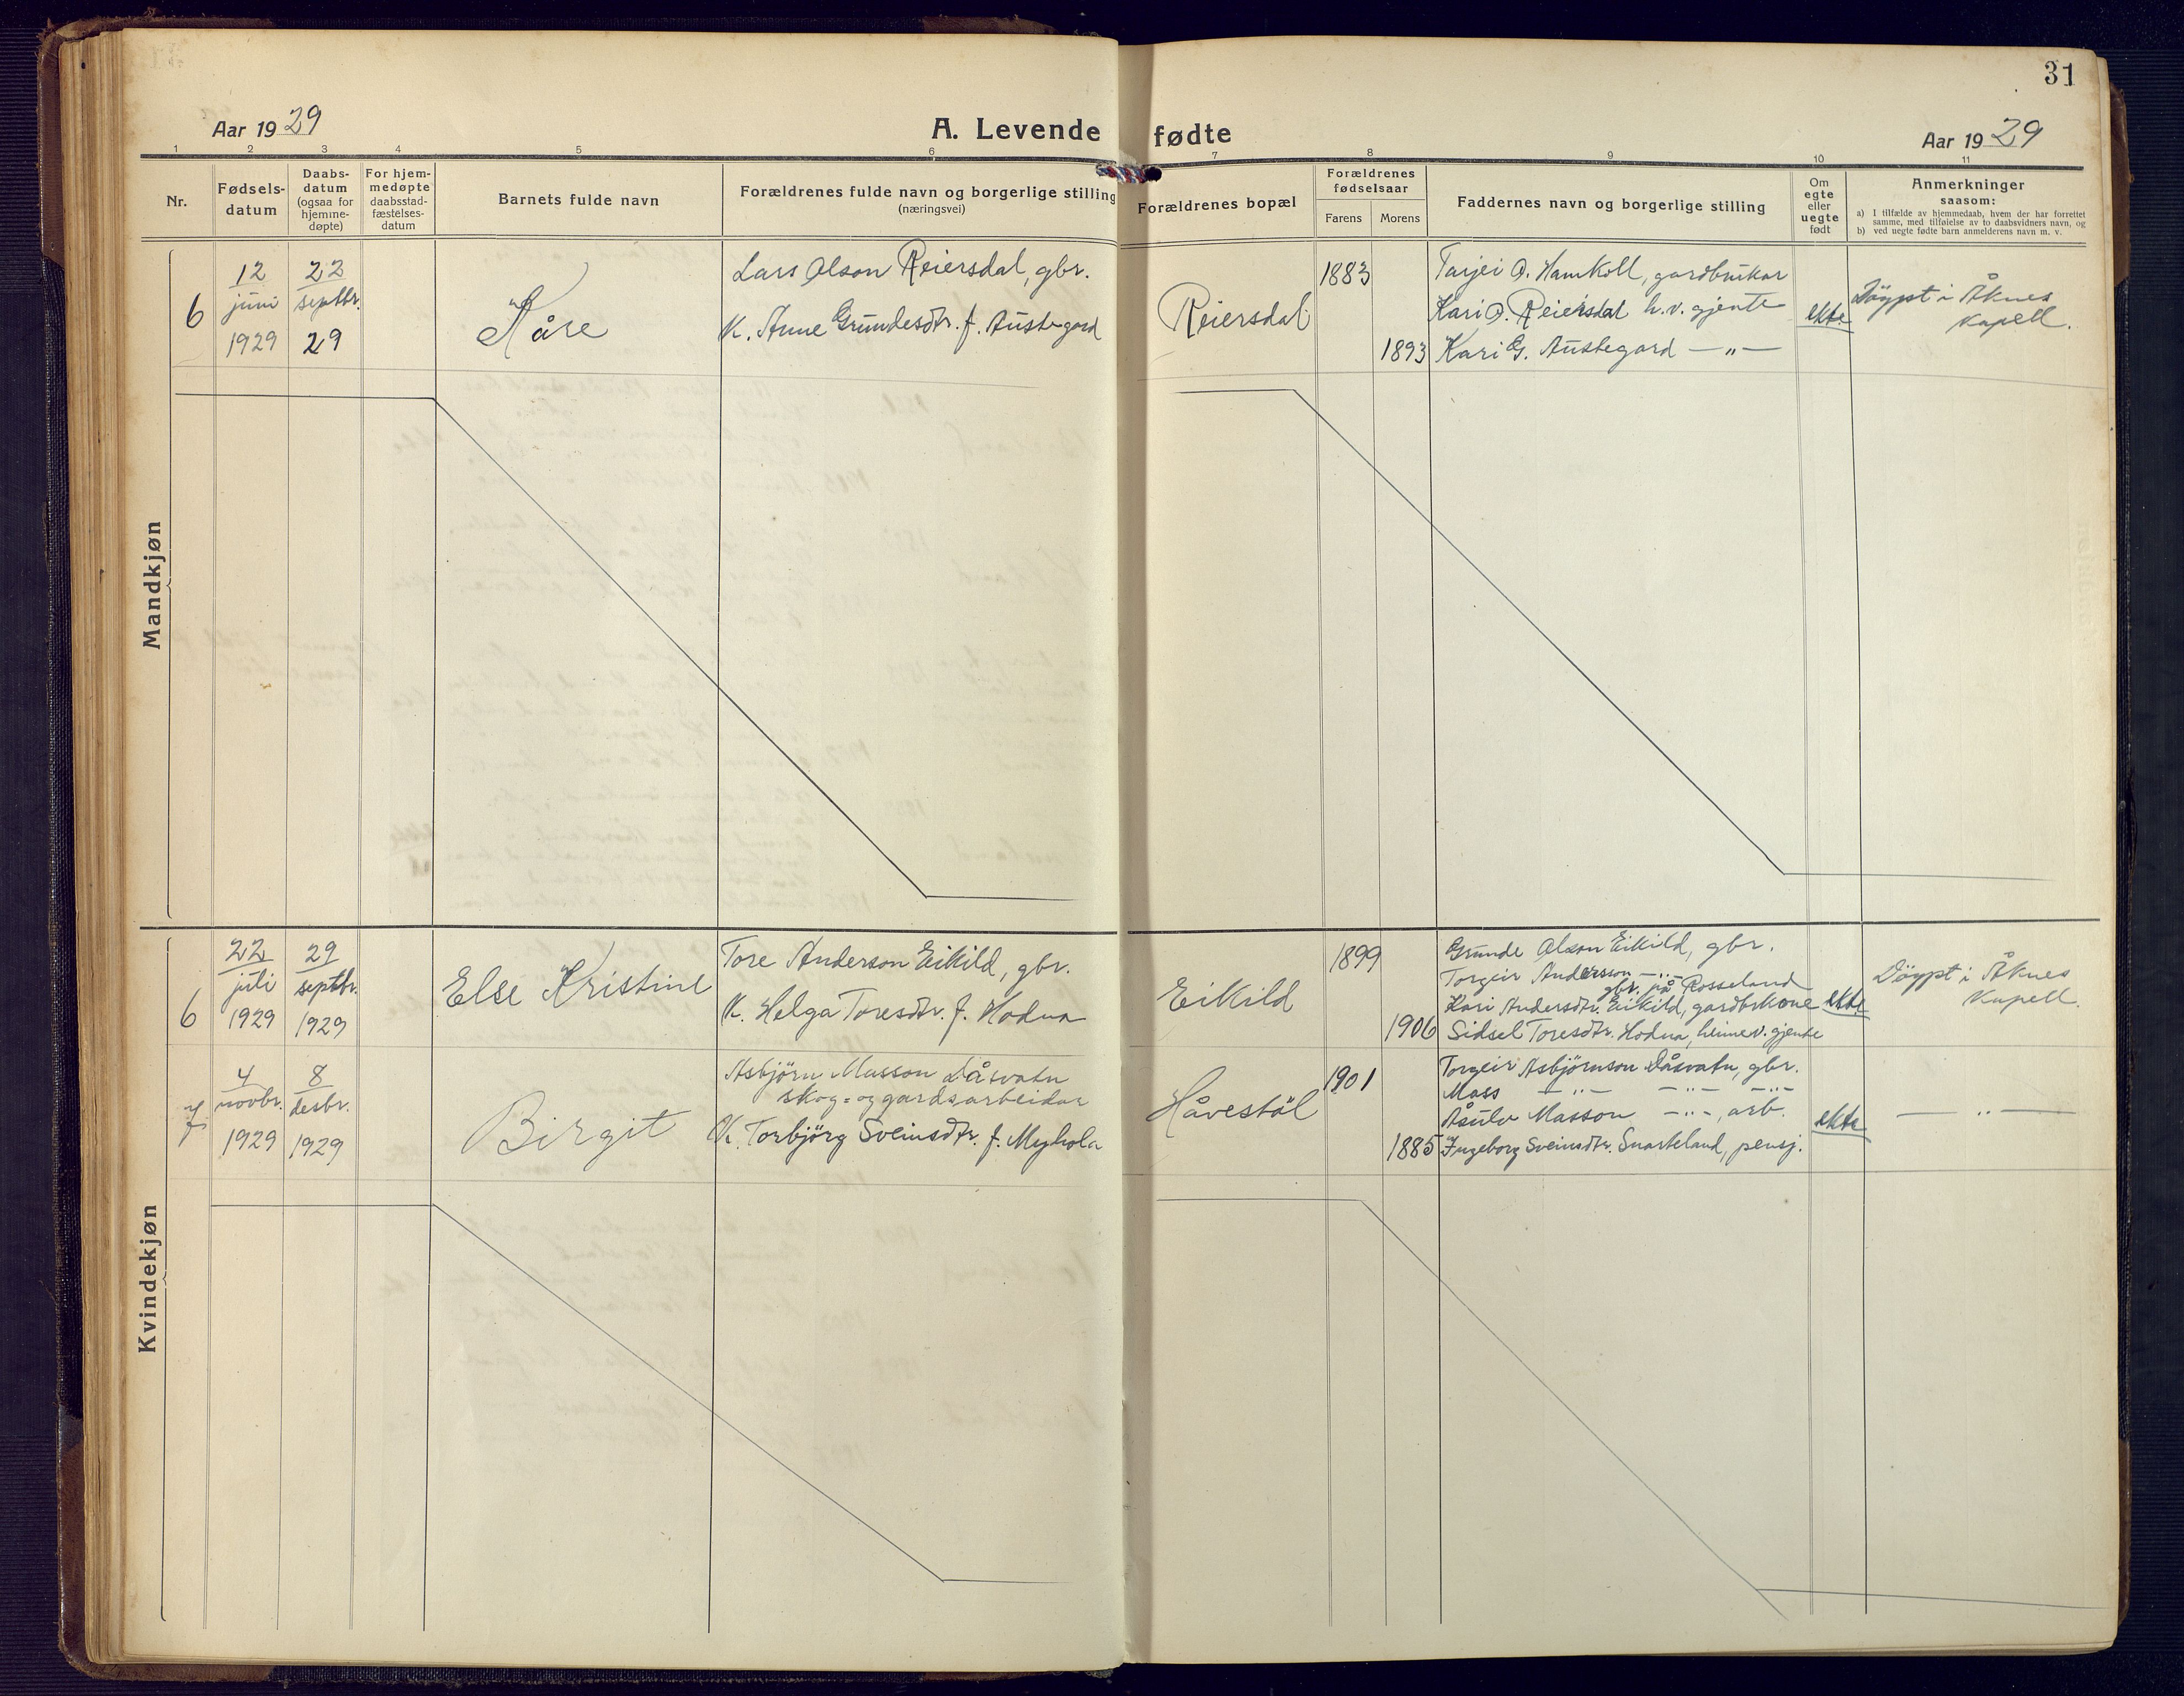 31
Aar 1929
A. Levende fødte
Aar 1929
1 2 3 4 5 6 7 8 9 10 11
Nr.
Fødsels-
datum
Daabs-
datum
(ogsaa for
hjemme-
døpte)
For hjem-
medøpte
daabsstad-
fæstelses-
datum
Barnets fulde navn
Forældrenes fulde navn og borgerlige stilling
(næringsvei)
Forældrenes bopæl
Forældrenes
fødselsaar
Farens
Morens
Faddernes navn og borgerlige stilling
Om
egte
eller
uegte
født
Anmerkninger
saasom:
a) I tilfælde av hjemmedaab, hvem der har forrettet
samme, med tilføielse av to daabsvidners navn, og
b) ved uegte fødte barn anmelderens navn m. v.
Mandkjøn
6
12
juni
1929
22
septbr.
29
Kåre
Lars Olson Reiersdal, gbr.
K. Anne Grundesdtr. f. Austegard
Reiersdal
1883
1893
Tarjei O. Hamkoll, gardbrukar
Kari O. Reiersdal h.v. gjente
Kari G. Austegard — " —
ekte
Döypt i Åknes
kapell.
Kvindekjøn
6
22
juli
1929
29
septbr.
1929
Else Kristine
Tore Anderson Eikild, gbr.
K. Helga Toresdtr. f. Hodna
Eikild
1899
1906
Grunde Olson Eikild, gbr.
Torgeir Andersson — " —
gbr. på Rosseland
Kari Andersdtr. Eikild, gardbrkone
Sidsel Toresdtr. Hodna, heimev. gjente
ekte
Döypt i Åknes
kapell.
7
4
novbr.
1929
8
desbr.
1929
Birgit
Asbjörn Masson Dåsvatn
skog- og gardsarbeidar
K. Torbjörg Sveinsdtr. f. Myhola
Håvestöl
1901
1885
Torgeir Asbjörnson Dåsvatn, gbr.
Mass — " — — " — — " —
Åsulv Masson — " —, arb.
Ingeborg Sveinsdtr. Snarteland, pensj.
ekte
— " —